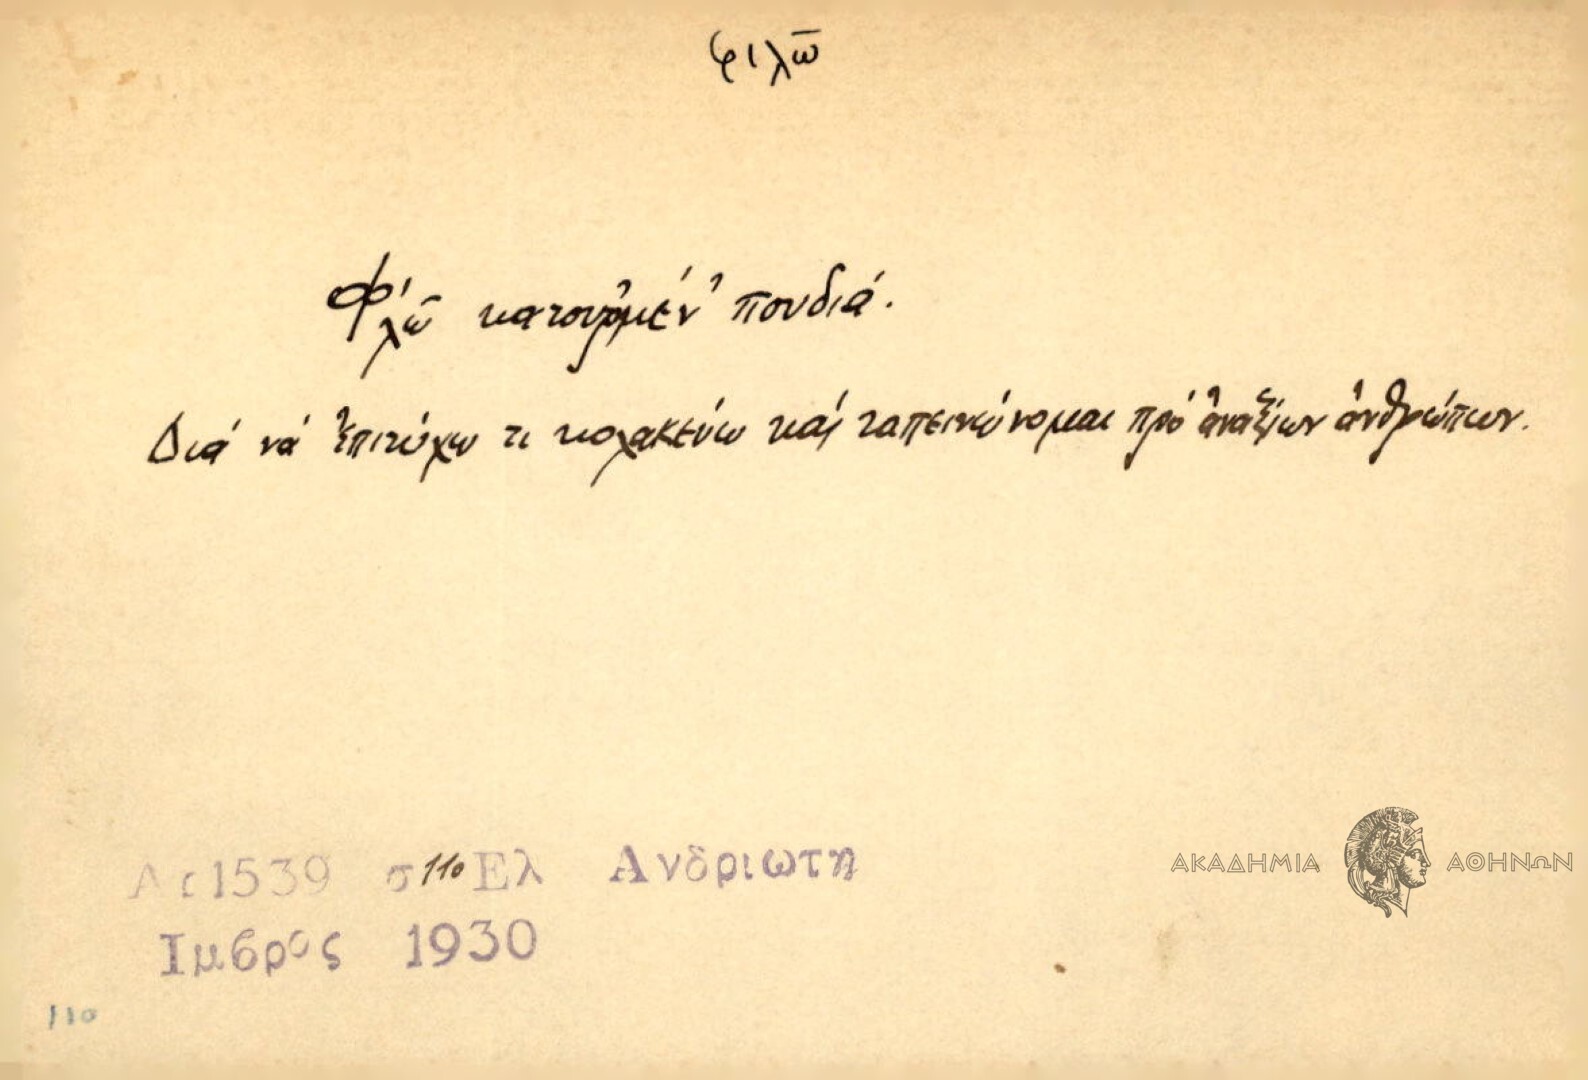 φιλῶ
Φ'λῶ κατουρ'μέν' πουδιά.
Διά νά ἐπιτύχω τι κολακεύω καί ταπεινώνομαι πρό ἀναξίων ἀνθρώπων.
Αρ 1539 σ 110 Ελ Ανδριωτη
Ιμβρος 1930
110
ΑΚΑΔΗΜΙΑ ΑΘΗΝΩΝ